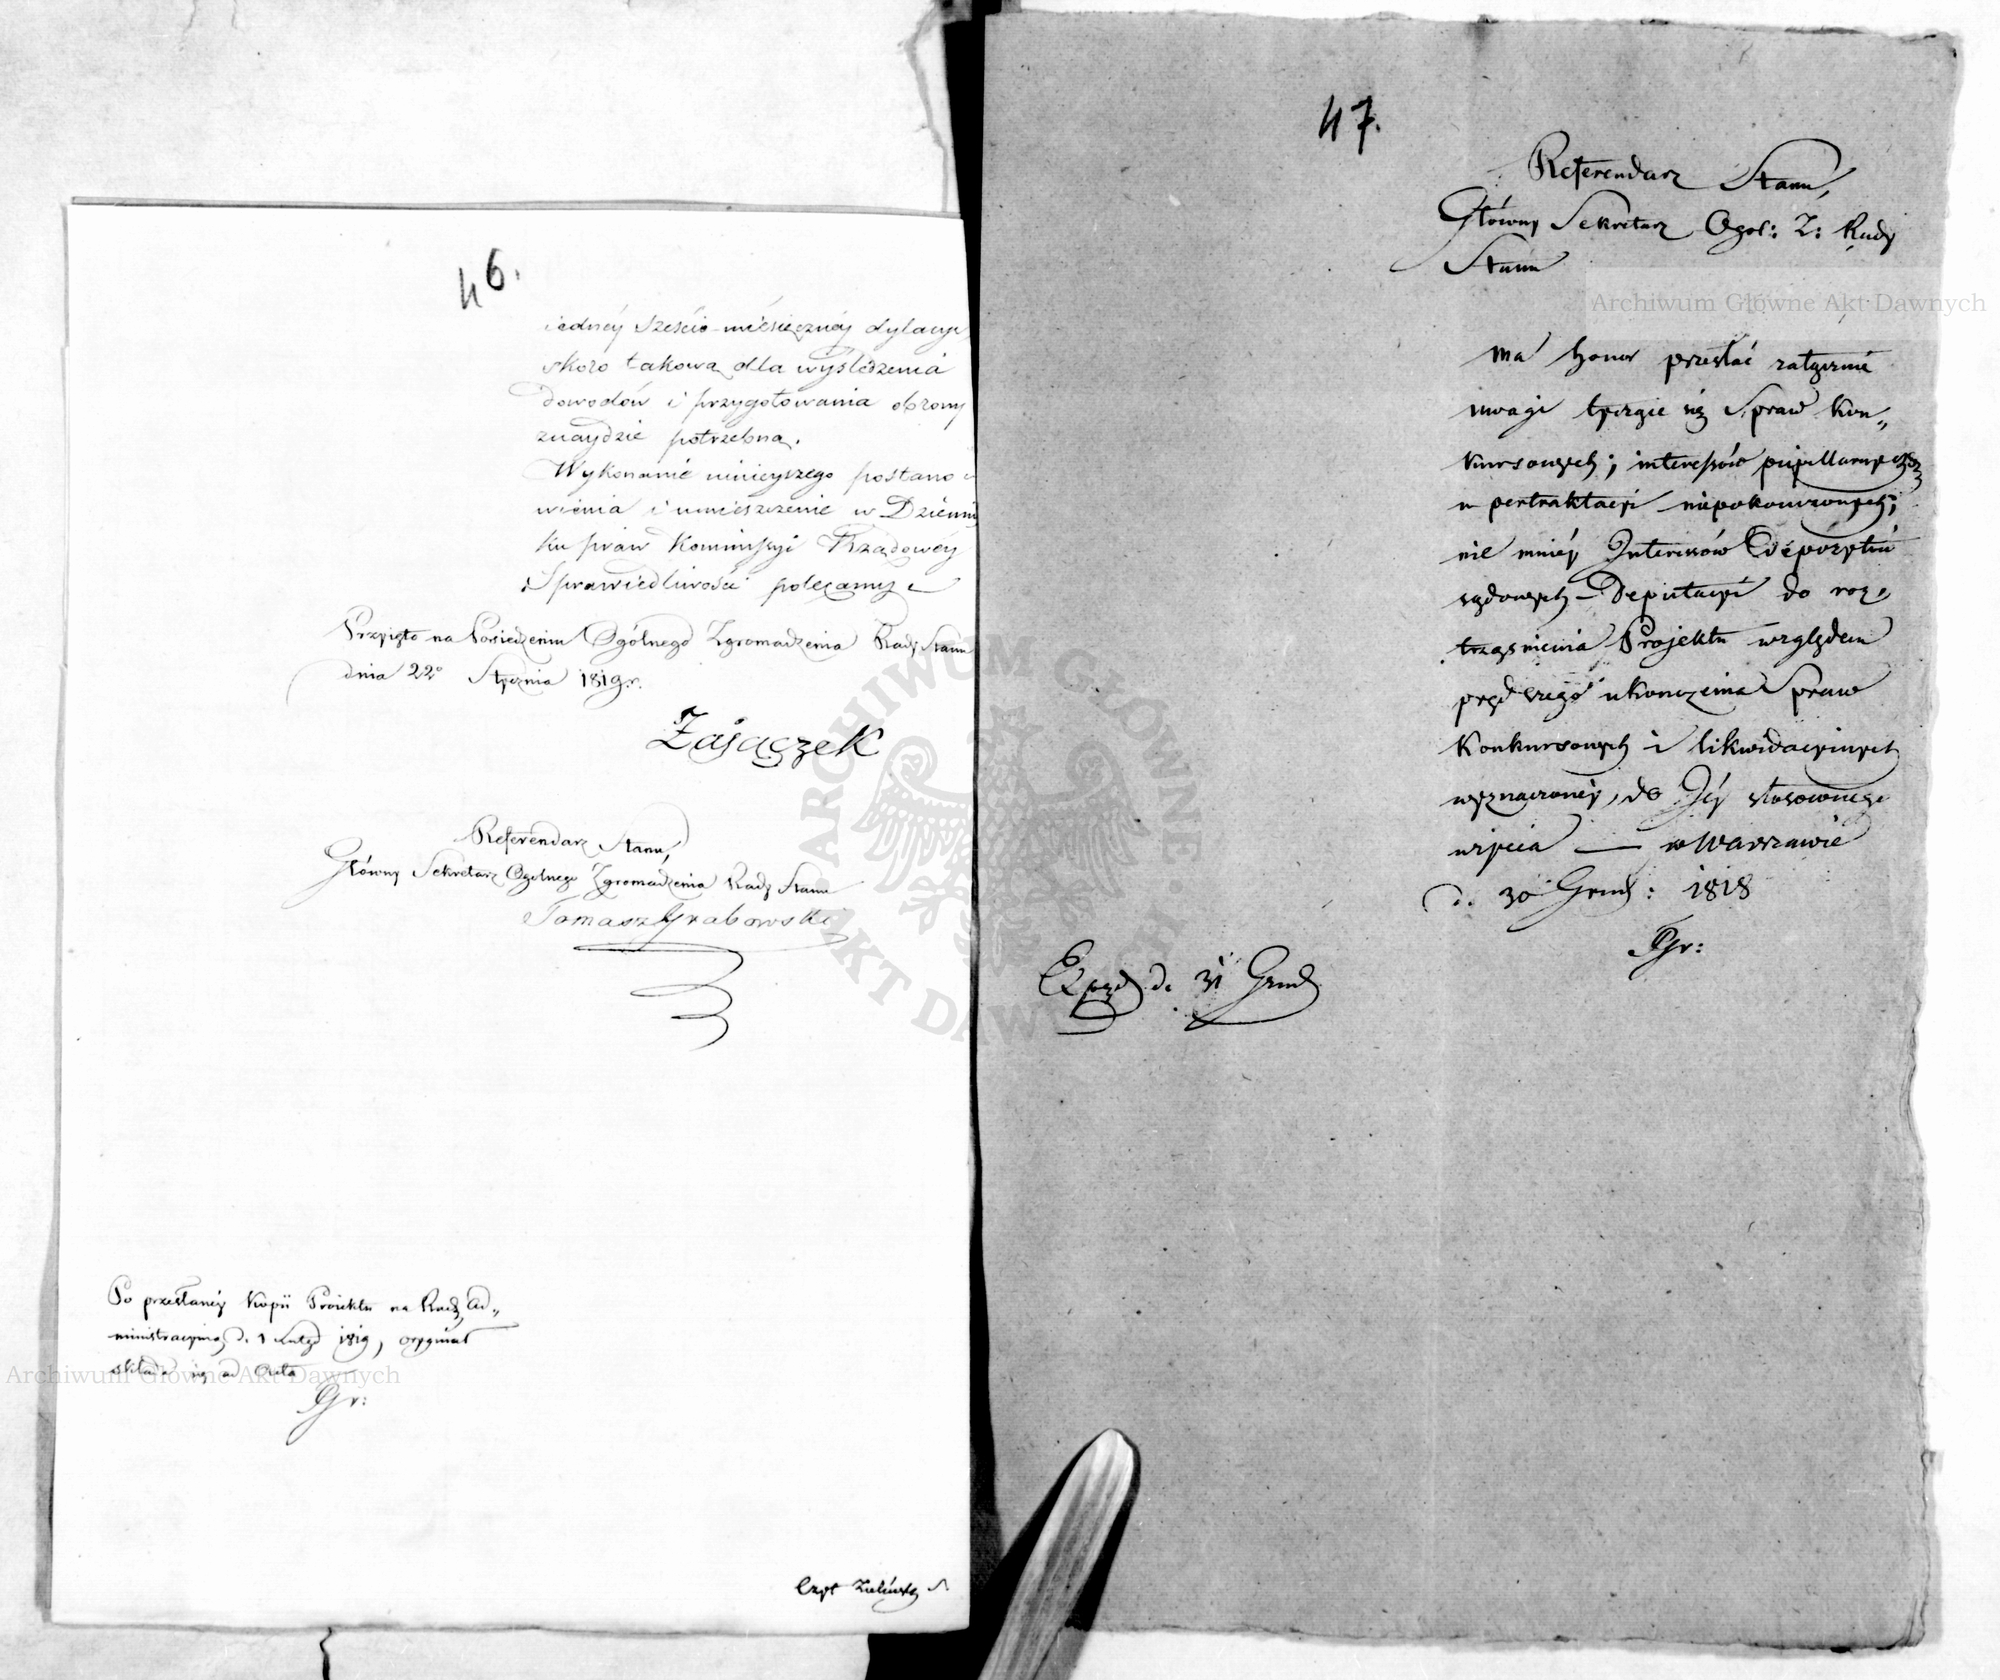 46.
iedney sześcio-miesięczney dylacyi
skoro takowa dla wyśledzenia
dowodów i przygotowania obrony
znaydzie potrzebną.
Wykonanie ninieyszego postano
wienia i umieszczenie w Dzienni
ku praw Kommissyi Rządowey
Sprawiedliwości polecamy
Przyięto na Posiedzeniu Ogólnego Zgromadzenia Rady Stanu
dnia 22º Stycznia 1819 r.
Zaiączek
Referendarz Stanu,
Główny Sekretarz Ogolnego Zgromadzenia Rady Stanu
Tomasz Grabowski
Po przesłaney kopii Proiektu na Radę Ad„
ministracyiną d. 1 Lutego 1819, oryginał
składa się ad Acta
Gr:
Czyt Zieliński
47.
Referendarz Stanu,
Główny Sekretarz Ogol: Z: Rady
Stanu
ma honor przesłać załącznie
uwagi tyczące się Spraw Kon„
kursowych; interessów pupillarnych
w pertraktacyi niepokończonych;
nie mniey Interessów Depozytu
sądowych – Deputacyi do roz„
trząśnienia Projektu względem
prędszego ukończenia Spraw
Konkursowych i likwidacyinych
wyznaczoney, do Jey stosownego
użycia — w Warszawie
d. 30 Grud: 1818
Gr:
Exped d. 31 Grud
Archiwum Główne Akt Dawnych
Archiwum Główne Akt Dawnych
ARCHIWUM GŁÓWNE AKT DAWNYCH